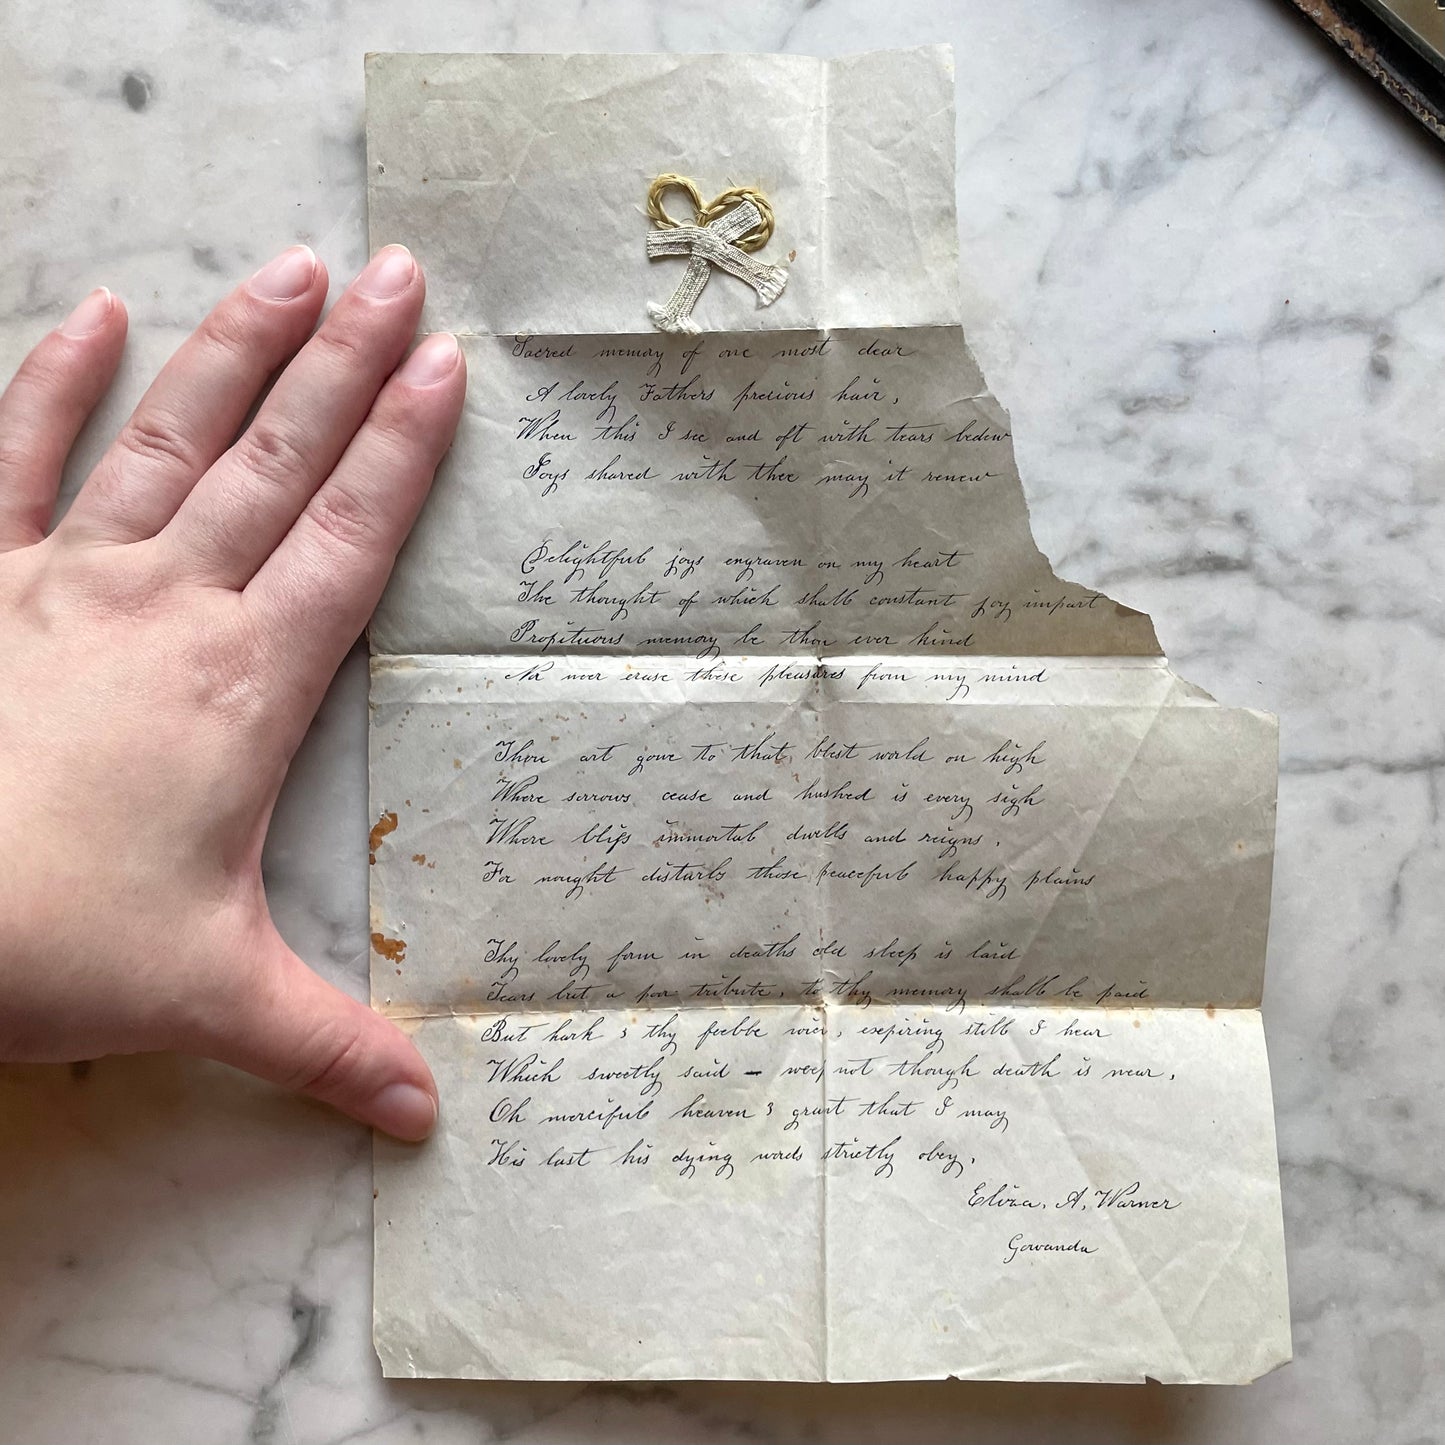 Sacred memory of one most dear
A lovely Fathers precious hair,
When this I see and oft with tears bedew
Joys shared with thee may it renew
Delightful joys engraven on my heart
The thought of which shall constant joy impart
Propituous memory be thou ever kind
Nor never erase these pleasures from my mind
Thou art gone to that blest world on high
Where sorrows cease and hushed is every sigh
Where bliss immortal dwells and reigns,
For nought disturbs those peaceful happy plains
Thy lovely form in deaths old sleep is laid
Tears but a poor tribute, to thy memory shall be paid
But hark thy feebbe , expiring still I hear
Which sweetly said - weep not though death is near,
Oh merciful heaven grant that I may
His last his dying words strictly obey,
Eliza. A. Warner
Gowanda